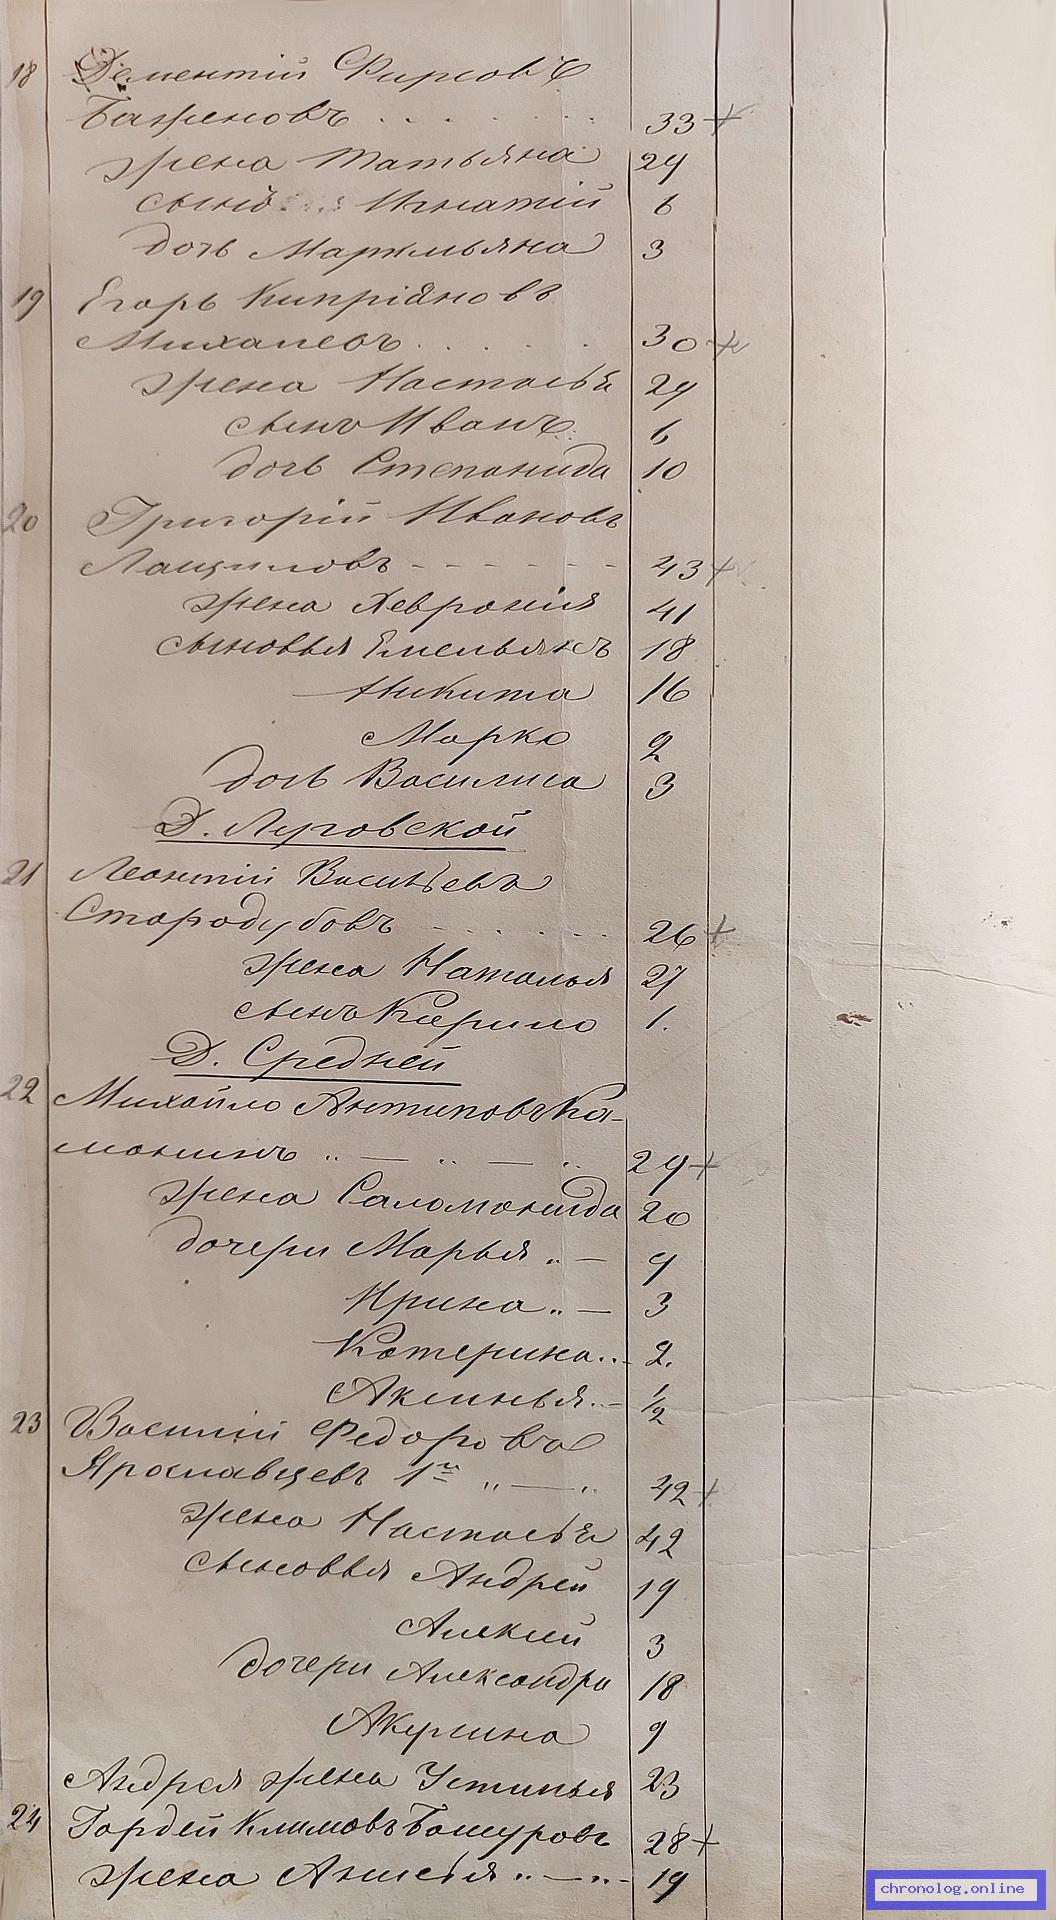 18 Дементій Фирсовъ
Баженовъ . . . . . . 33 +
жена Татьяна 29
сынъ Игнатій 6
дочь Маремьяна 3
19 Егоръ Кипріяновъ
Михалевъ . . . . . 30 +
жена Настасья 29
сынъ Иванъ 6
дочь Степанида 10
20 Григорій Ивановъ
Лащиловъ - - - - - - 43 +
жена Хевронія 41
сыновья Емельянъ 18
Никита 16
Марко 2
дочь Василиса 3
Д. Луговской
21 Леонтій Васильевъ
Стародубовъ - . . . . . 26 +
жена Наталья 27
сынъ Кирило 1.
Д. Средней
22 Михайло Антиповъ Ка-
монинъ „ — „ — „ 29 +
жена Саломонида 20
дочери Марья „ — 9
Ирина „ — 3
Катерина . . - 2.
Аксинья . . - 1/2
23 Василій Федоровъ
Ярославцевъ 1й „ — „ 42 +
жена Настасья 42
сыновья Андрей 19
Алексей 3
дочери Александра 18
Акулина 9
Андрея жена Устинья 23
24 Гордей Климовъ 28 +
жена 19
chronolog.online